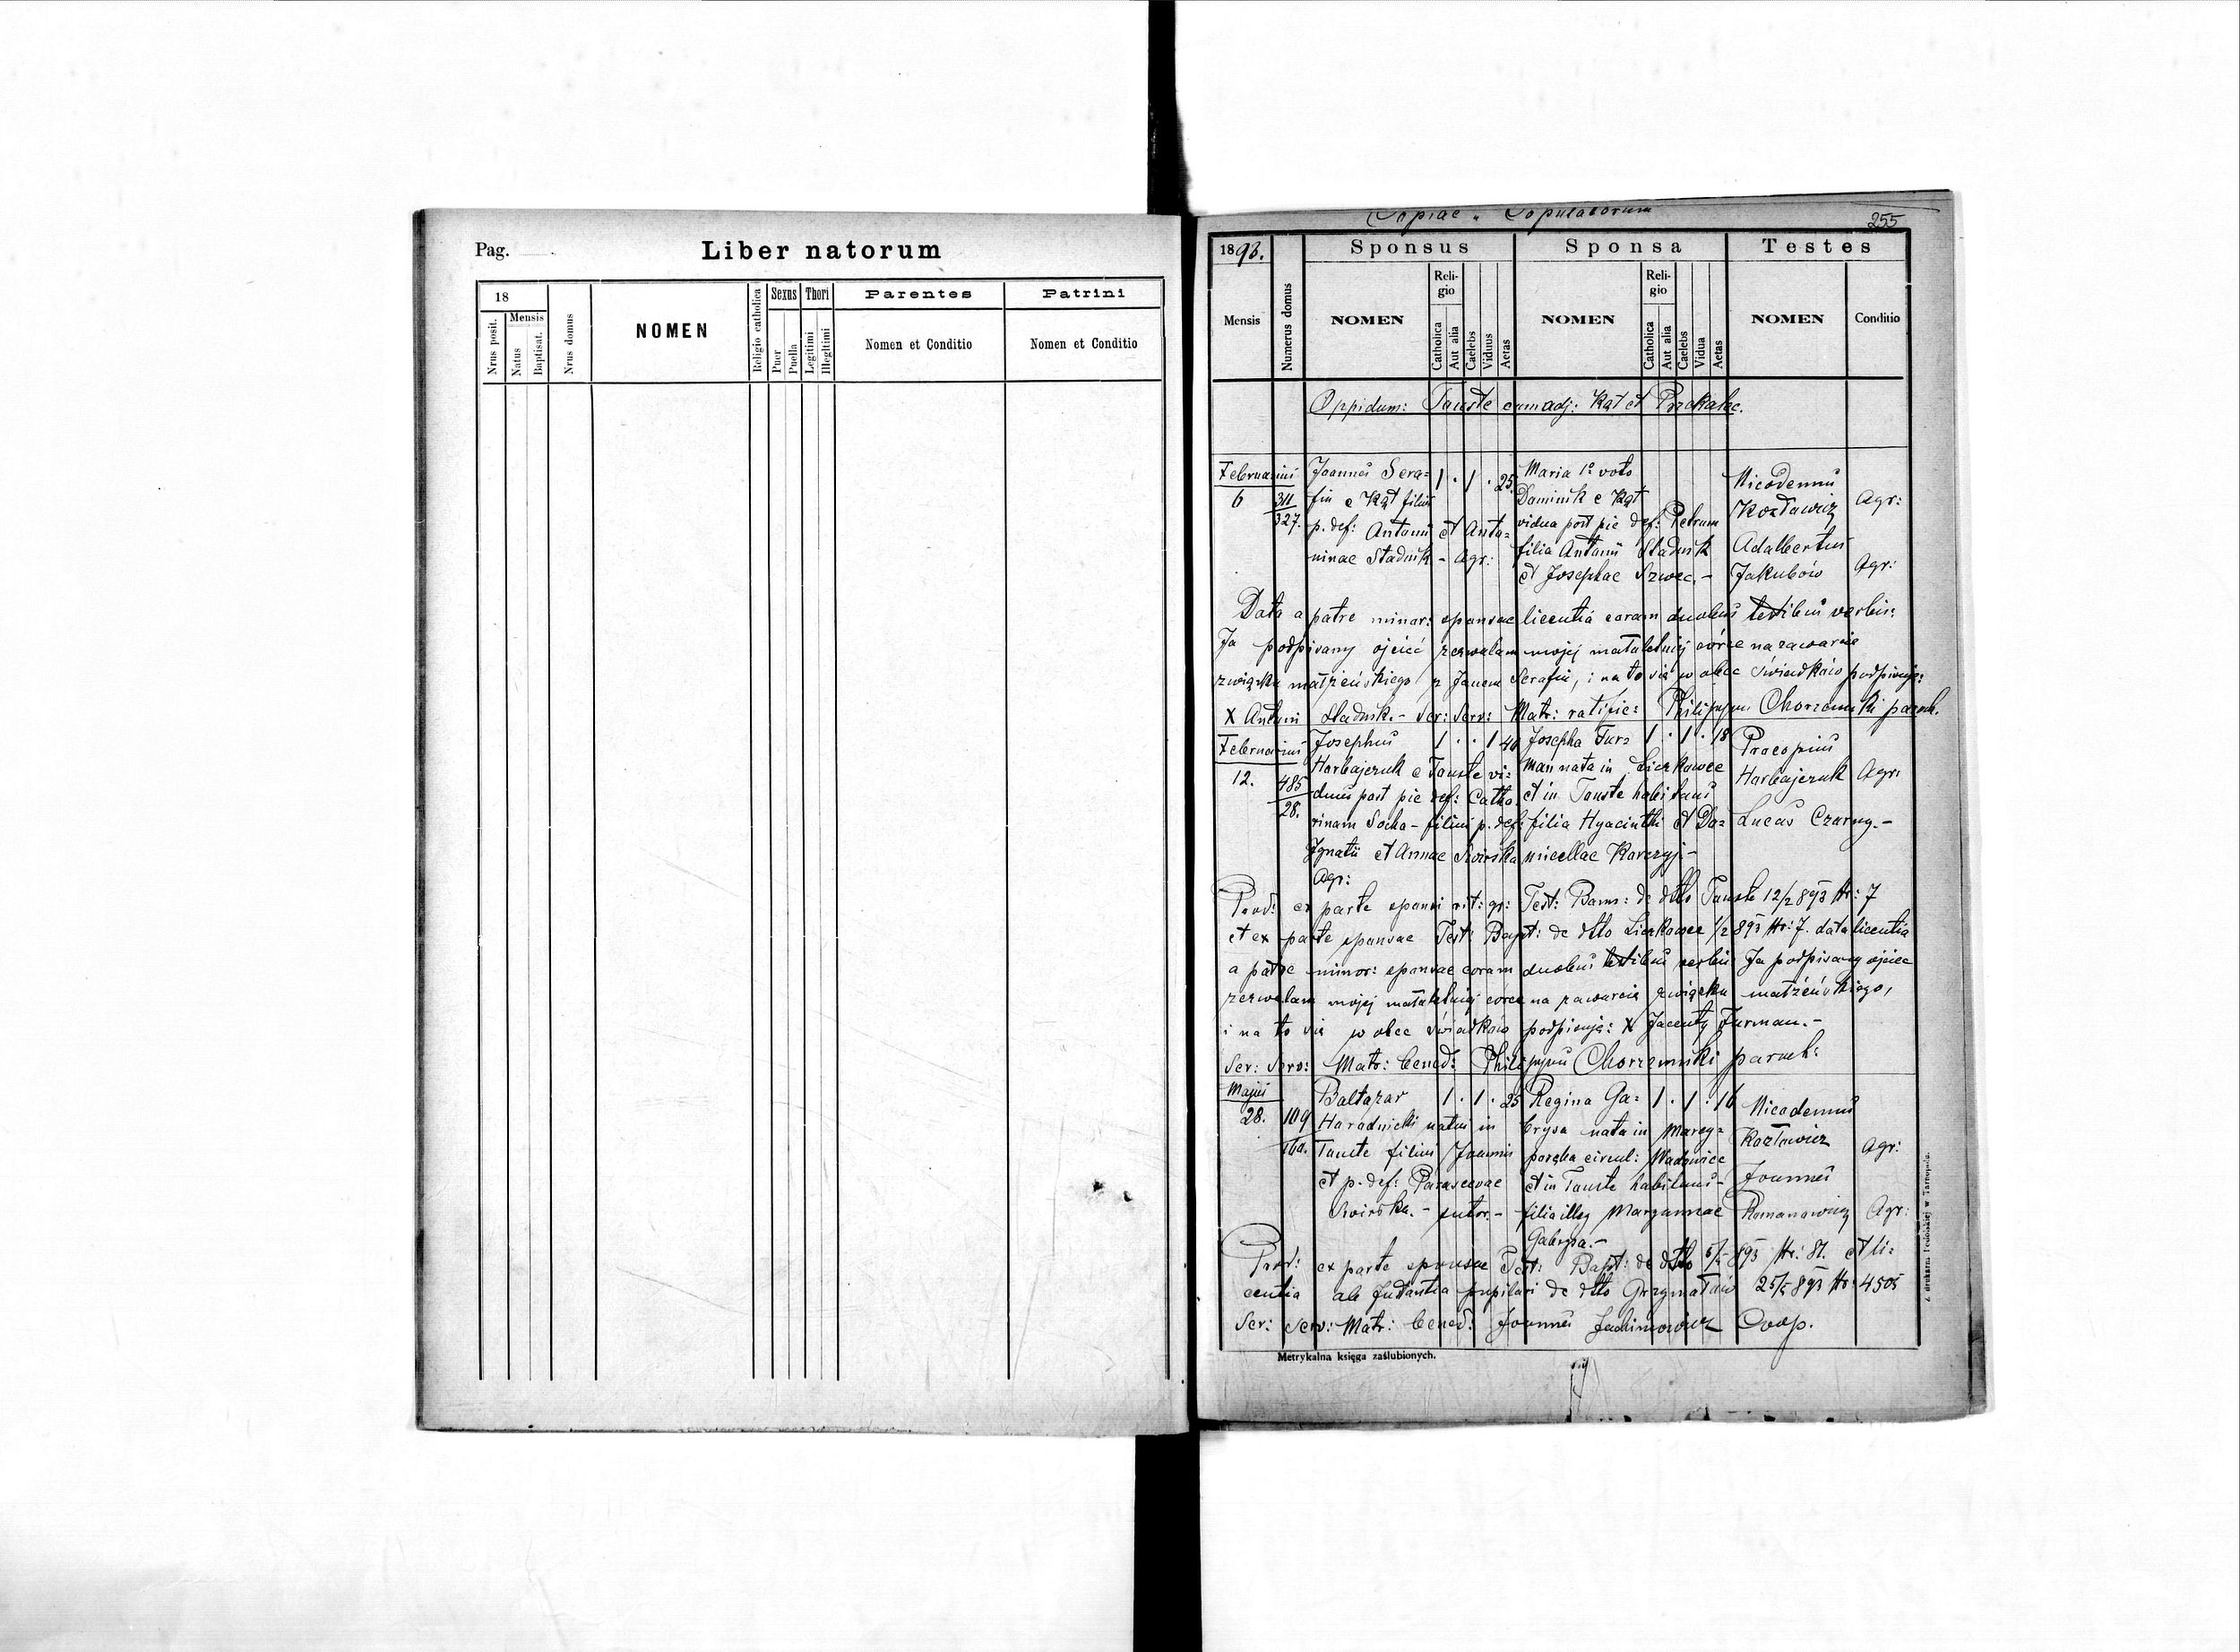 Pag.
Liber natorum
18
Mensis
Nrus posit.
Natus
Baptisat.
Nrus domus
NOMEN
Religio catholica
Sexus
Puer
Puella
Thori
Legitimi
Illegitimi
Parentes
Nomen et Conditio
Patrini
Nomen et Conditio
Copiae Copulatorum
255
1893.
Mensis
Numerus domus
Sponsus
NOMEN
Reli-
gio
Catholica
Aut alia
Caelebs
Viduus
Aetas
Sponsa
NOMEN
Reli-
gio
Catholica
Aut alia
Caelebs
Vidua
Aetas
Testes
NOMEN
Conditio
Oppidum: Touste cum adj: Kąt et
Februarius
6
311
327.
Joannes Sera=
fin e Kąt filius
p. def: Antonii et Anto=
ninae Stadnik - Agr:
1 . 1 . 25.
Maria 1º voto
Dominik e Kąt
vidua post pie def: Petrum
filia Antonii Stadnik
et Josephae Szwec. -
Nicodemus
Kozłowicz
Agr:
Adalbertus
Jakubów
Agr:
Data a patre minor: sponsae licentia coram duobus testibus verbis:
Ja podpisany ojciec zezwalam mojej małoletniej córce na zawarcie
związku małżeńskiego z Janem Serafin, i na to się w obec świadków podpisuję:
X Antoni Stadnik. - Ser: Serv: Matr: ratific: Philippus Chorzemski paroch.
Februarius
12.
485
28.
Josephus
Harbajczuk e Touste vi=
duus post pie def: Catha
rinam Socha - filius p. def:
Ignatii et Annae Świrska
Agr:
1 . . 1 40
Josepha Fur=
man nata in Liczkowce
et in Touste habitans
filia Hyacinthi et Do=
micellae Korczyj. -
1 . 1 . 18
Procopius
Harbajczuk
Agr:
Lucas Czarny. -
Prod: ex parte sponsi rit: gr: Test: Bann: de dtto Touste 12/2 893 Nr: 7
et ex parte sponsae Test: Bapt: de dtto Liczkowce 1/2 893 Nr: 7. data licentia
a patre minor: sponsae coram duobus testibus verbis Ja podpisany ojciec
zezwalam mojej małoletniej córce na zawarcie związku małżeńskiego,
i na to się w obec świadków podpisuję: X Jacenty Furman. -
Ser: Serv: Matr: bened: Philippus Chorzemski paroch:
Majus
28.
109
160.
Baltazar
Haradnicki natus in
Touste filius Joannis
et p. def: Parascevae
Świrska. - sutor. -
1 . 1 . 25
Regina Ga=
brysa nata in Marcy=
poręba circul: Wadowice
et in Touste habitans -
filia illeg Mariannae
Gabrysa. -
1 . 1 . 16
Nicodemus
Kozłowicz
Agr:
Joannes
Romanowicz
Agr:
Prod: ex parte sponsae Test: Bapt: de dtto 893 Nr: 81. et li=
centia ab pupilari de dtto Grzymałów 25/5 893 Nr: 4505
Ser: Serv: Matr: bened: Joannes Jachimowicz Coop.
Metrykalna księga zaślubionych.